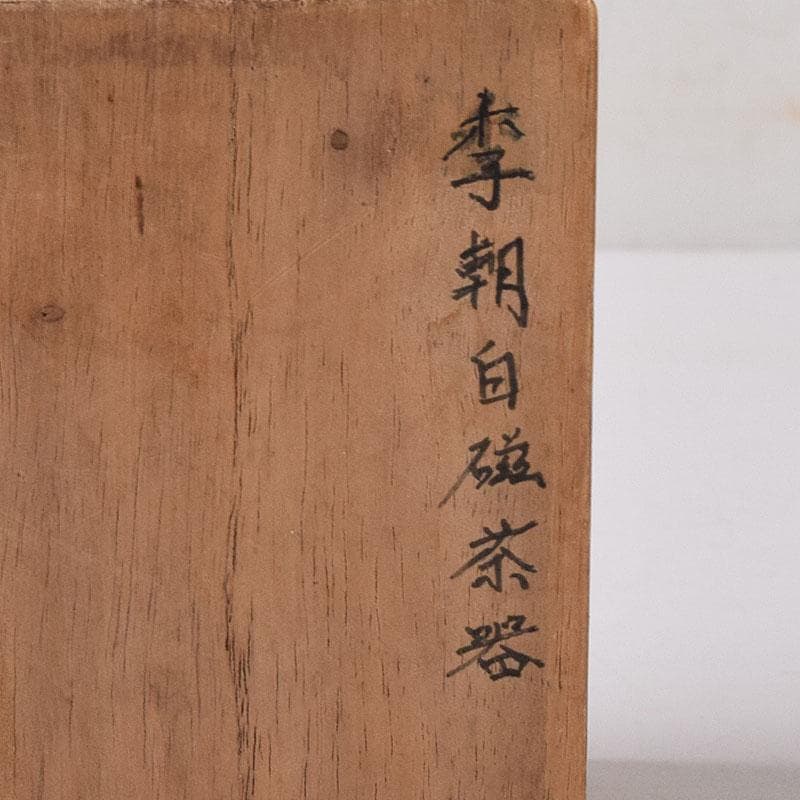 李朝白磁茶器